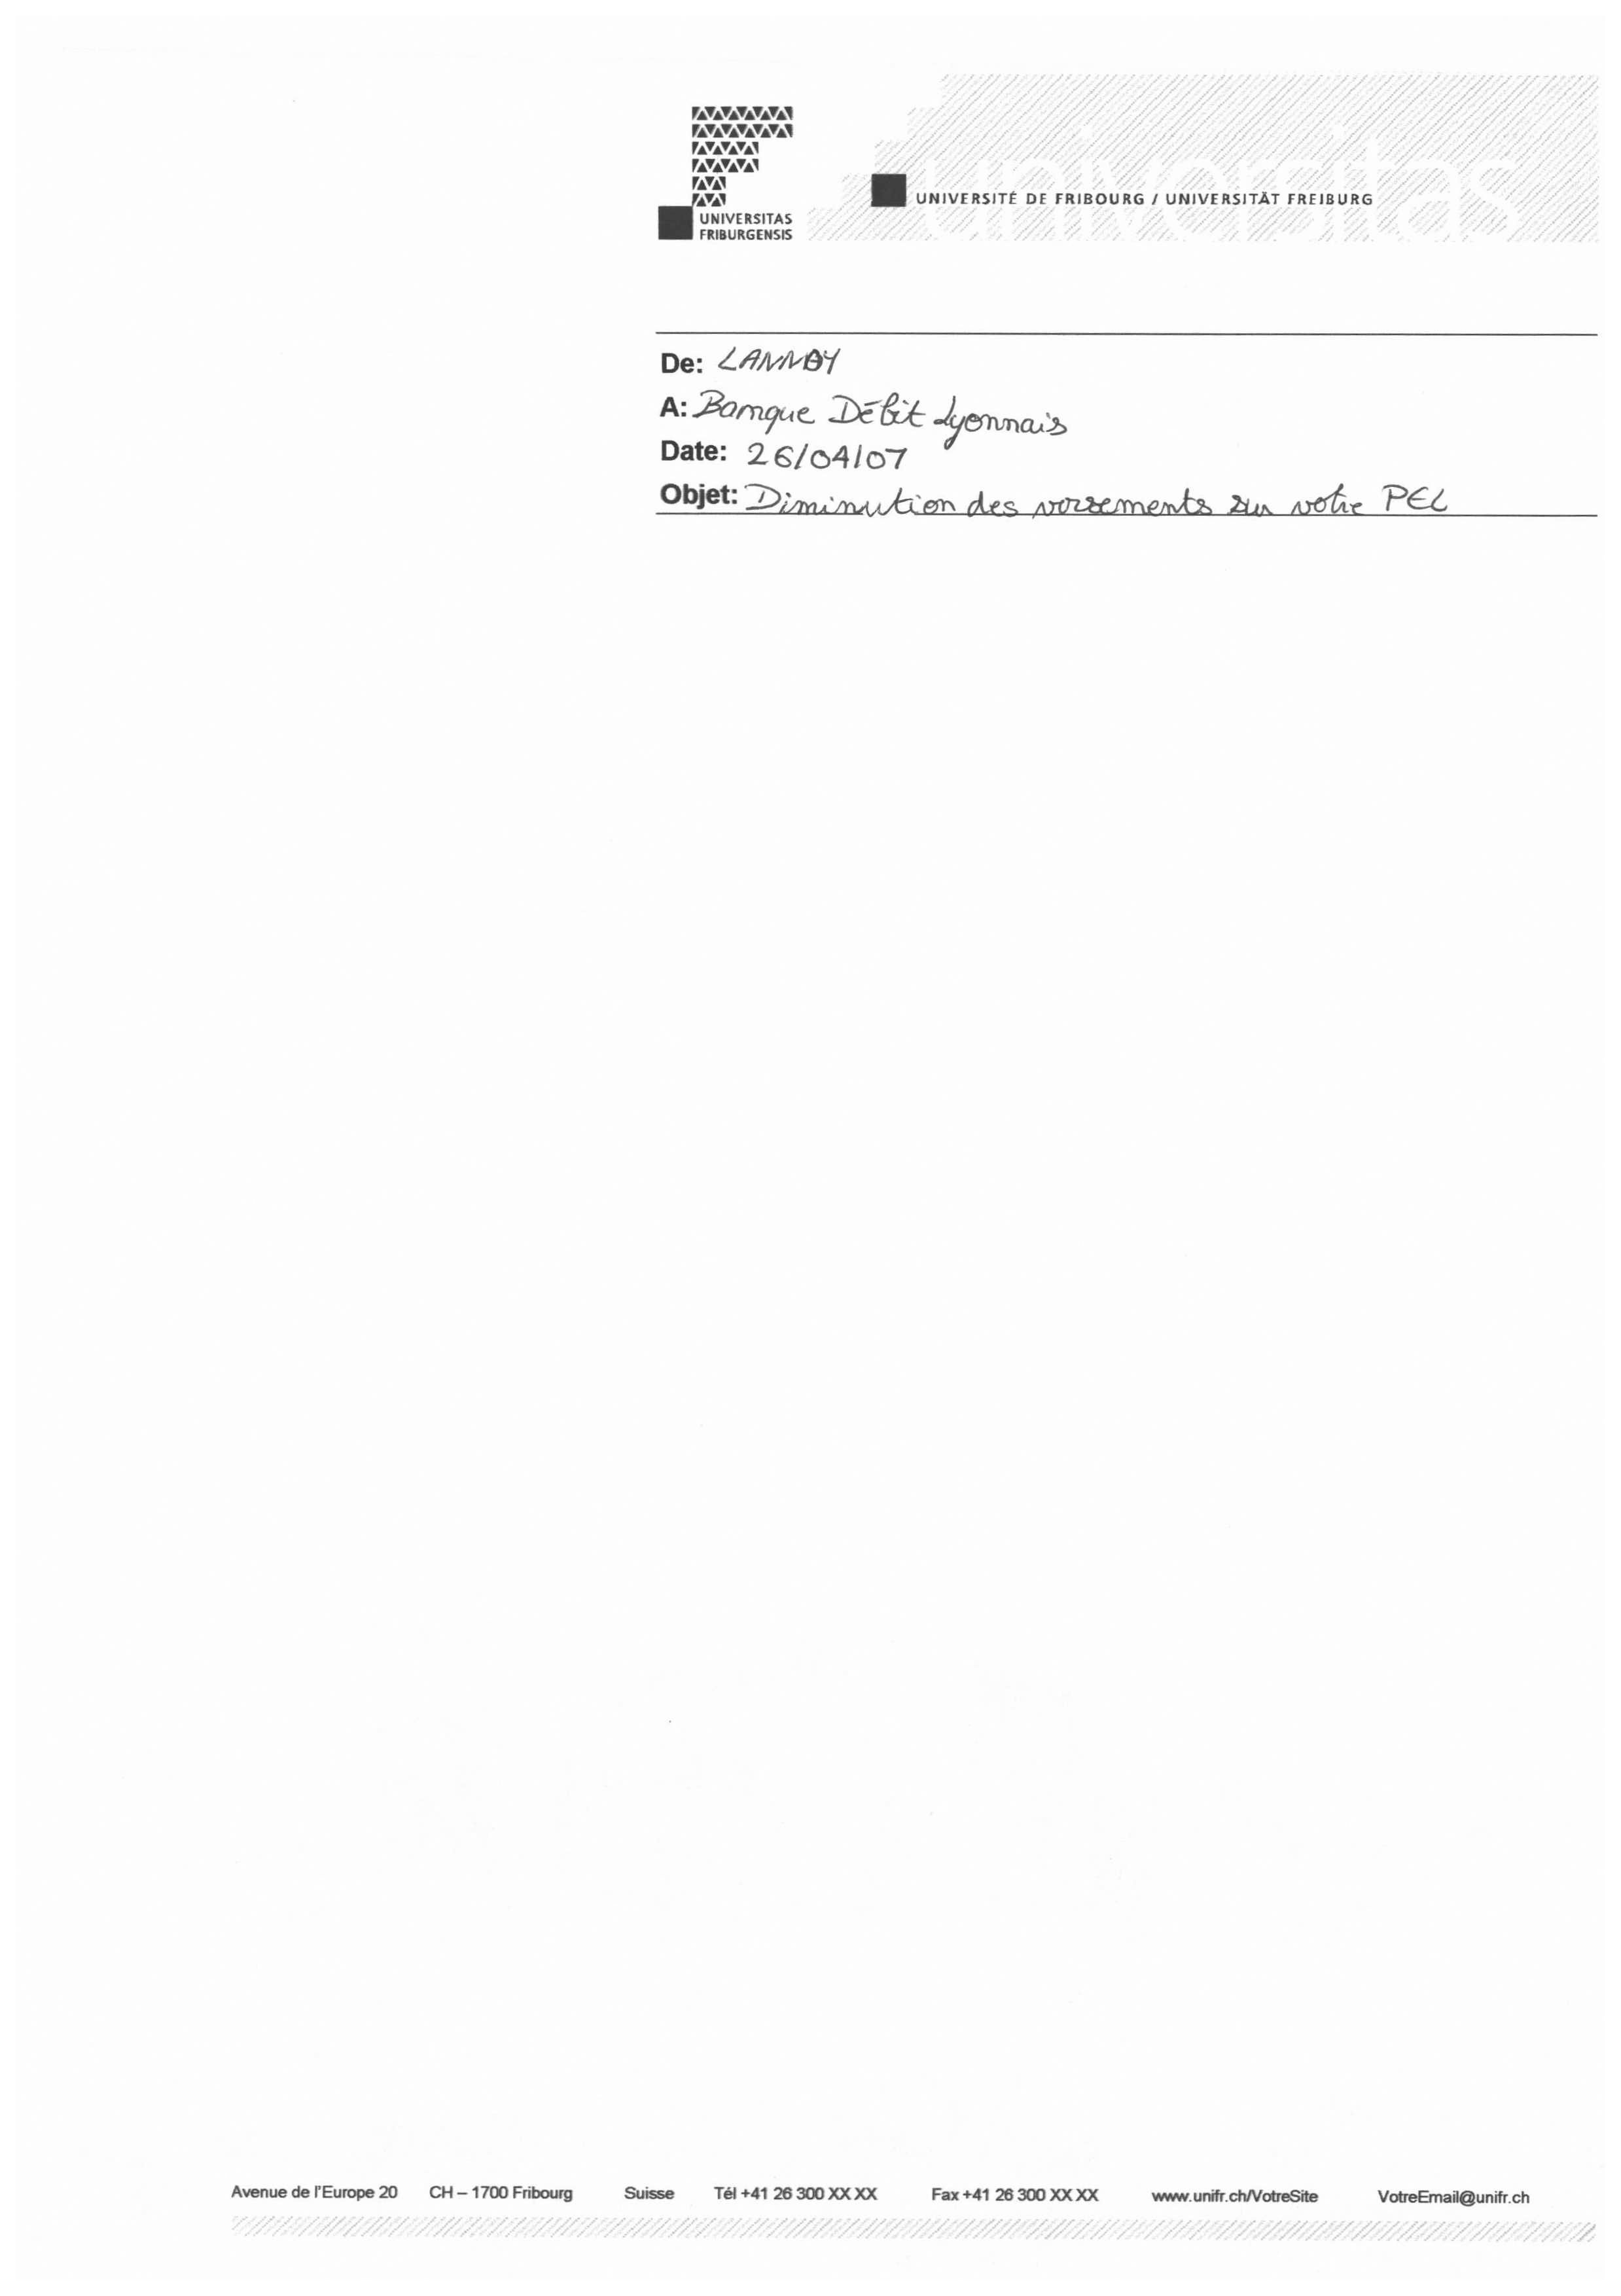 universitas
UNIVERSITÉ DE FRIBOURG / UNIVERSITÄT FREIBURG
UNIVERSITAS
FRIBURGENSIS
De:
A: Banque Débit Lyonnais
Date: 26/04/07
Objet: Diminution des versements sur votre PEL
Avenue de l'Europe 20 CH – 1700 Fribourg Suisse Tél +41 26 300 XX XX Fax +41 26 300 XX XX www.unifr.ch/VotreSite VotreEmail@unifr.ch